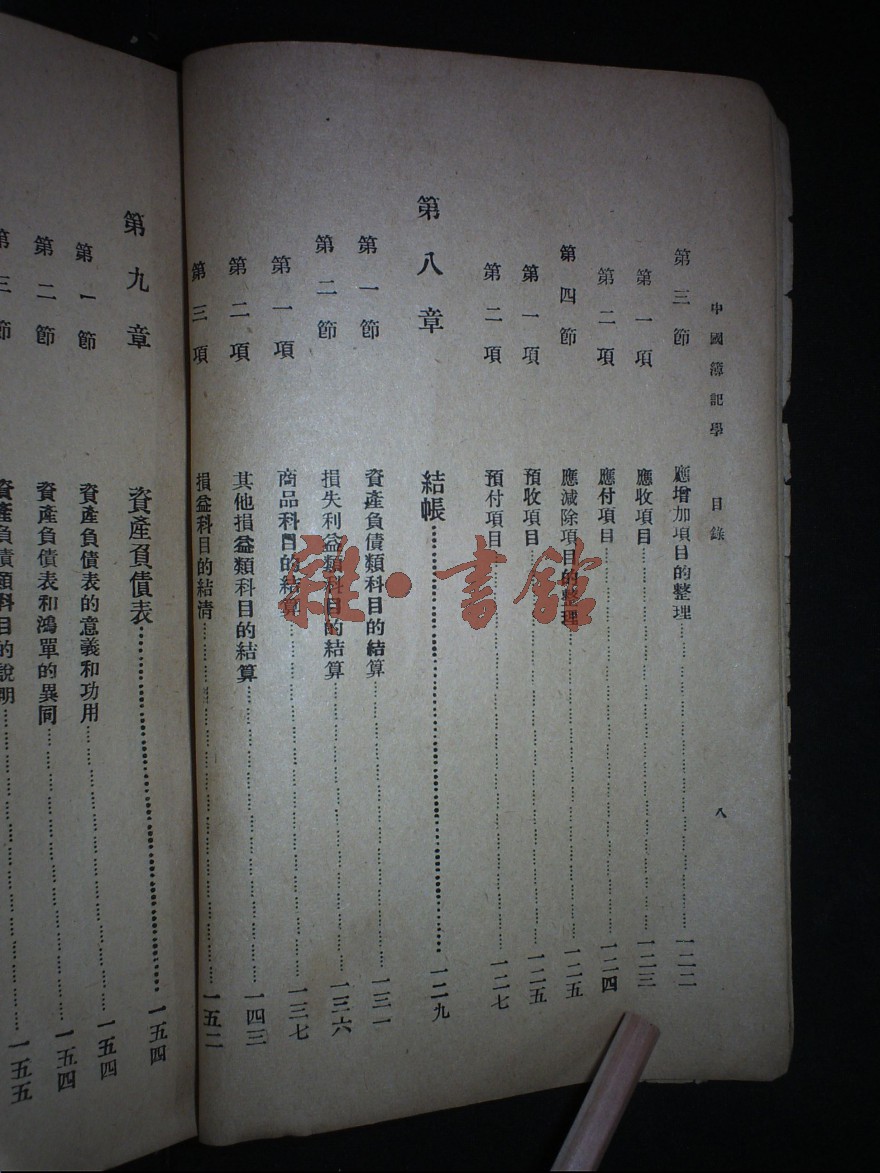 中國簿記學 目錄 八
第三節 應增加項目的整理……一二二
第一項 應收項目……一二三
第二項 應付項目……一二四
第四節 應減除項目的整理……一二五
第一項 預收項目……一二五
第二項 預付項目……一二七
第八章 結帳……一二九
第一節 資產負債類科目的結算……一三一
第二節 損失利益類科目的結算……一三六
第一項 商品科目的結算……一三七
第二項 其他損益類科目的結算……一四三
第三項 損益科目的結清……一五二
第九章 資產負債表……一五四
第一節 資產負債表的意義和功用……一五四
第二節 資產負債表和鴻單的異同……一五四
第三節 資產負債類科目的說明……一五五
雜·書館